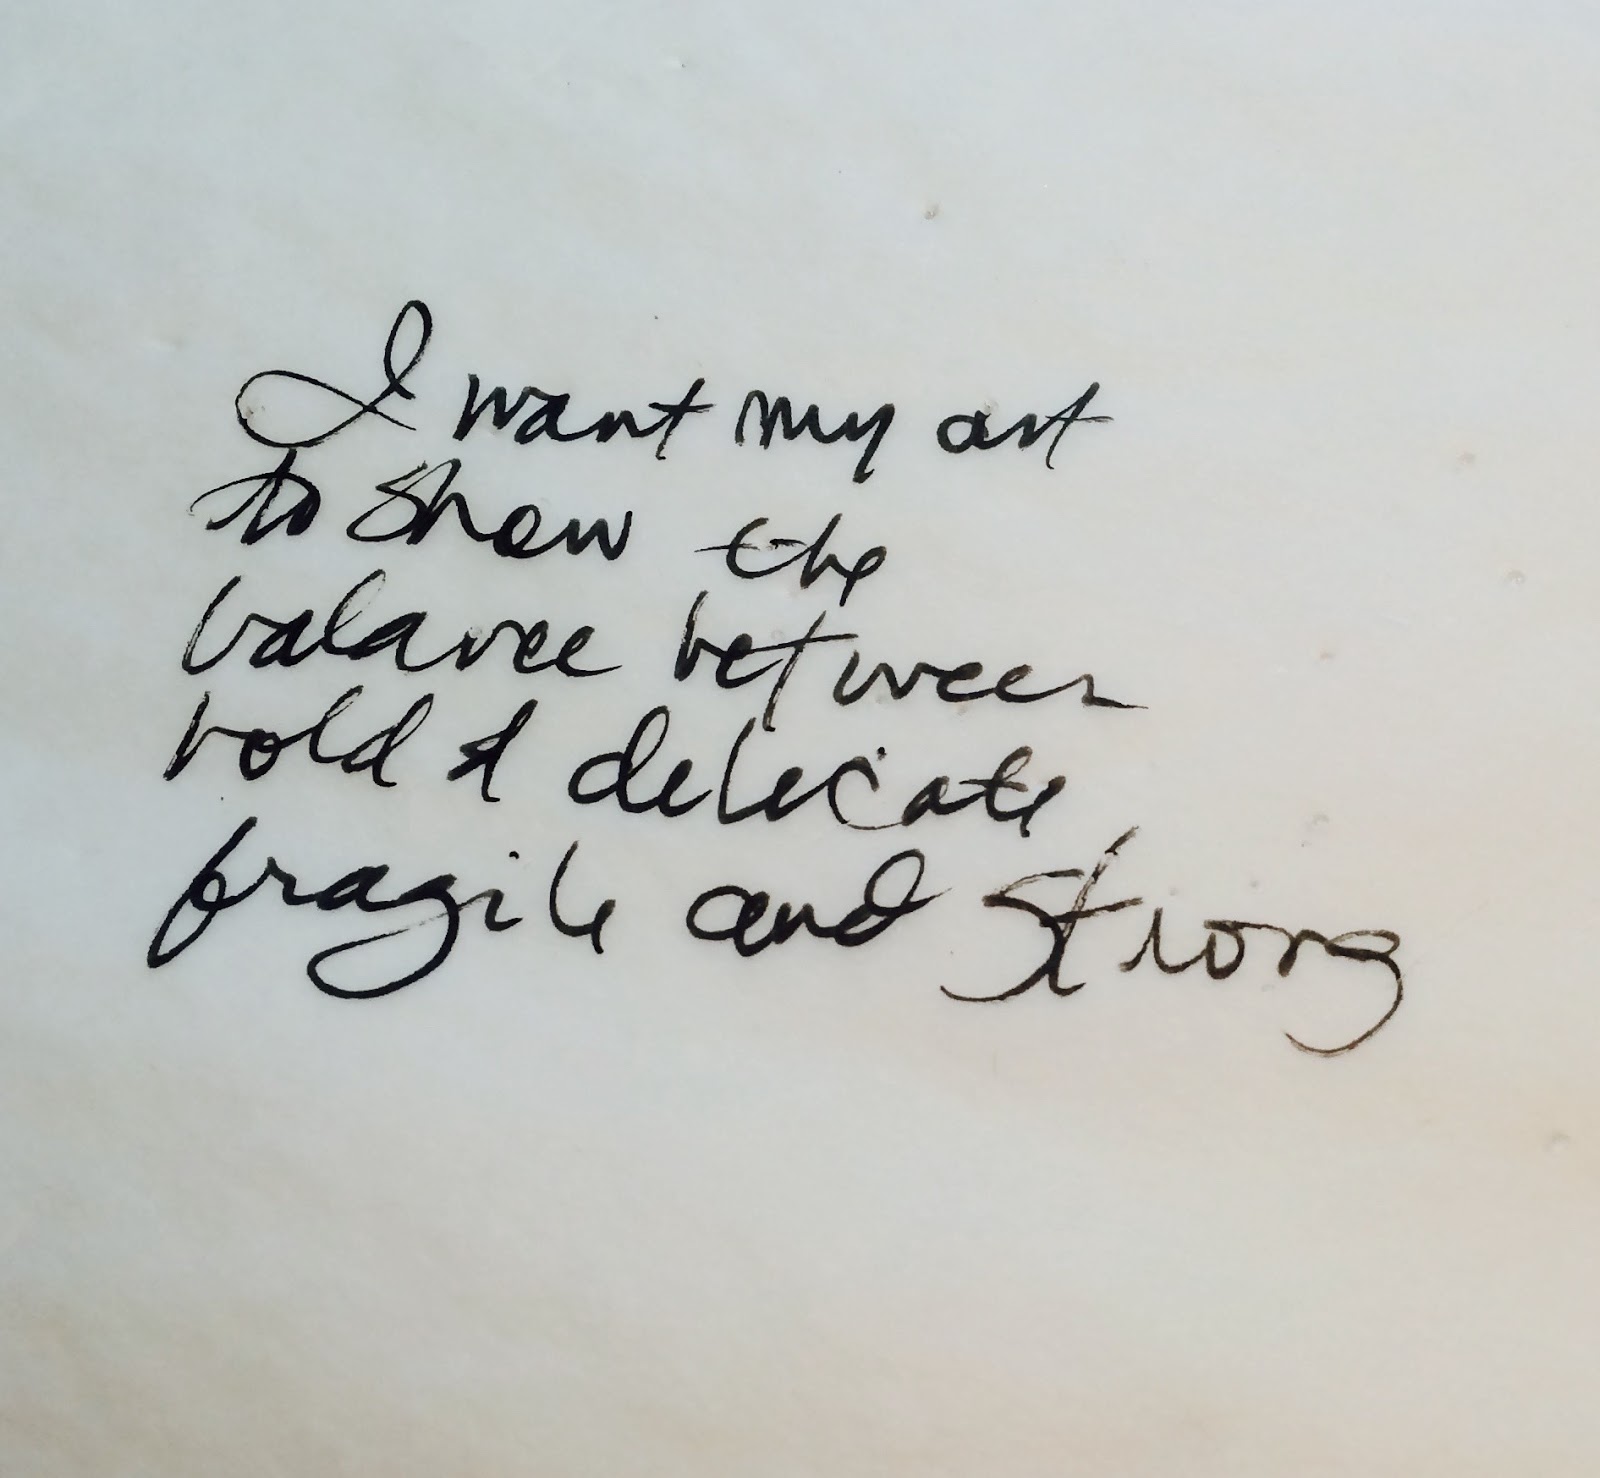 I want my art
to show the
balance between
bold & delicate,
fragile and strong